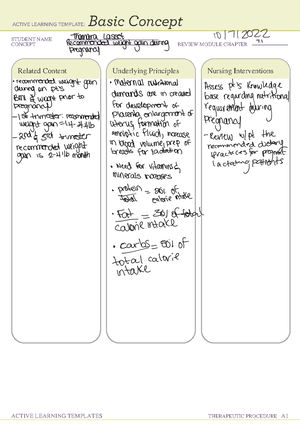 ACTIVE LEARNING TEMPLATE: Basic Concept
STUDENT NAME
CONCEPT Recommended weight gain during
pregnancy
10/7/2022
REVIEW MODULE CHAPTER
Related Content
• recommended weight gain
during on pt's
BMI & weight prior to
pregnancy
- 1st trimester recommended
weight gain
- 2nd & 3rd trimester
recommended weight
gain is
Underlying Principles
• Maternal nutritional
demands are in created
for development of
placenta, enlargement of
uterus, formation of
amniotic fluid, increase
in blood volume, prep of
breasts for lactation
• Need for vitamins &
minerals increases
• protein = 20% of
total calorie intake
• Fat = 30% of total
calorie intake
• carbs = 50% of
total calorie
intake
Nursing Interventions
Assess pt's knowledge
base regarding nutritional
requirement during
pregnancy
- Review w/pt the
recommended dietary
practices for pregnant
lactating patients
ACTIVE LEARNING TEMPLATES
THERAPEUTIC PROCEDURE A1